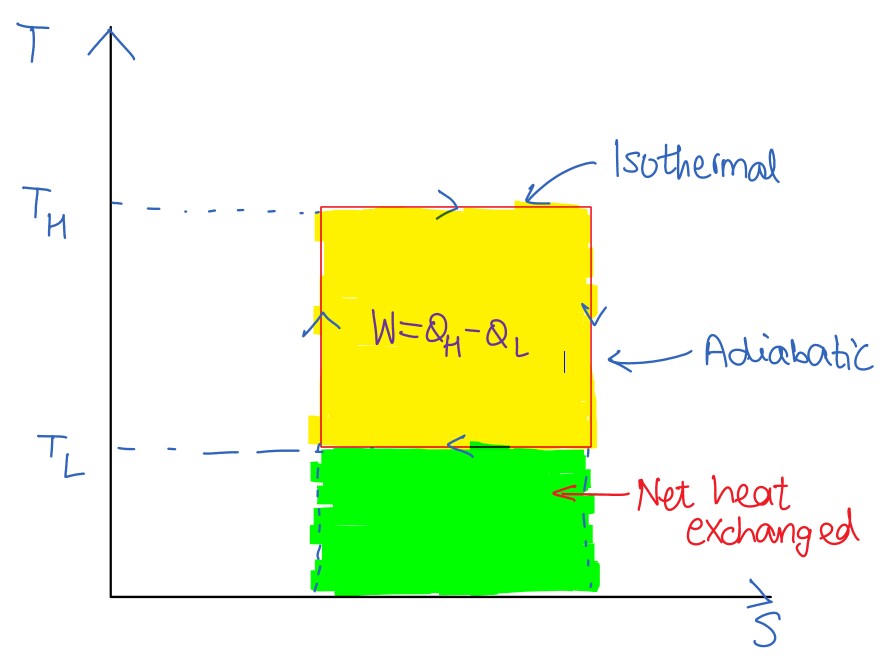 T
Isothermal
T_H
W=Q_H-Q_L
Adiabatic
T_L
Net heat
exchanged
S